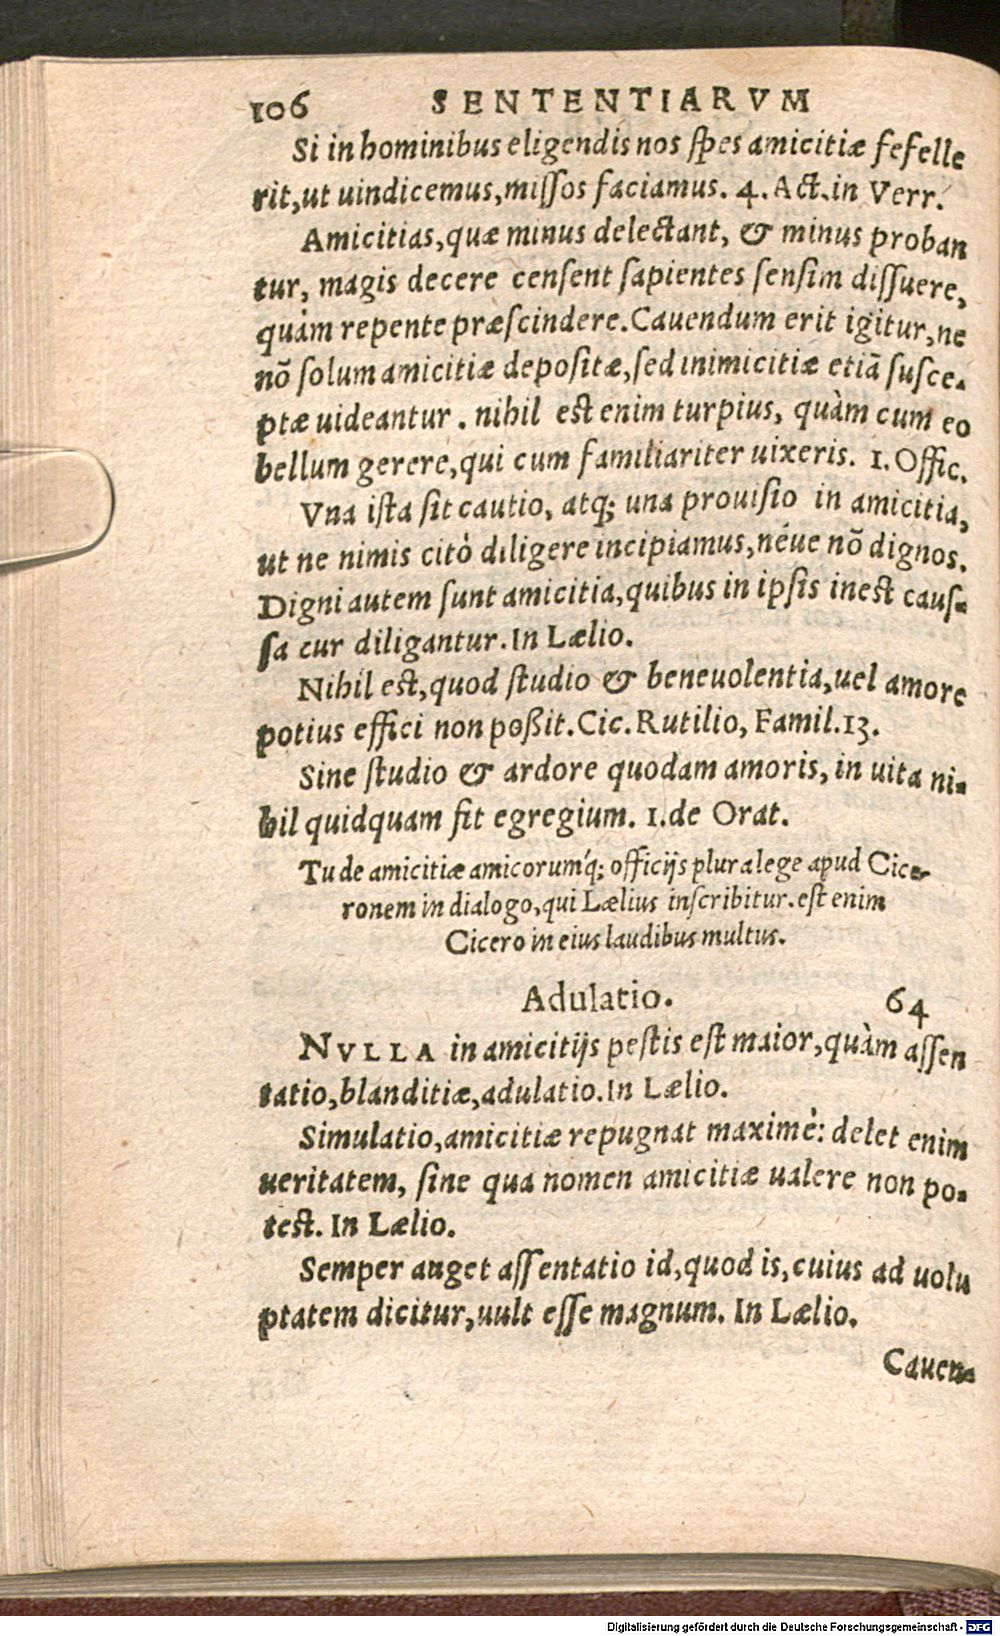 106 SENTENTIARVM
Si in hominibus eligendis nos ſpes amicitiæ fefelle
rit, ut uindicemus, miſſos faciamus. 4. Act. in Verr.
Amicitias, quæ minus delectant, & minus proban
tur, magis decere cenſent ſapientes ſenſim diſſuere,
quàm repente præſcindere. Cauendum erit igitur, ne
nõ ſolum amicitiæ depoſitæ, ſed inimicitiæ etiã ſuſce-
ptæ uideantur. nihil eſt enim turpius, quàm cum eo
bellum gerere, qui cum familiariter uixeris. 1. Offic.
Vna iſta ſit cautio, atq; una prouiſio in amicitia,
ut ne nimis citò diligere incipiamus, néue nõ dignos.
Digni autem ſunt amicitia, quibus in ipſis ineſt cauſ-
ſa cur diligantur. In Lælio.
Nihil eſt, quod ſtudio & beneuolentia, uel amore
potius effici non poßit. Cic. Rutilio, Famil. 13.
Sine ſtudio & ardore quodam amoris, in uita ni-
hil quidquam fit egregium. 1. de Orat.
Tu de amicitiæ amicorum'q; officijs plura lege apud Cice-
ronem in dialogo, qui Lælius inſcribitur. eſt enim
Cicero in eius laudibus multus.
Adulatio. 64
NVLLA in amicitijs peſtis eſt maior, quàm aſſen
tatio, blanditiæ, adulatio. In Lælio.
Simulatio, amicitiæ repugnat maximè: delet enim
ueritatem, ſine qua nomen amicitiæ ualere non po-
teſt. In Lælio.
Semper auget aſſentatio id, quod is, cuius ad uolu
ptatem dicitur, uult eſſe magnum. In Lælio.
Cauen-
Digitalisierung gefördert durch die Deutsche Forschungsgemeinschaft - DFG